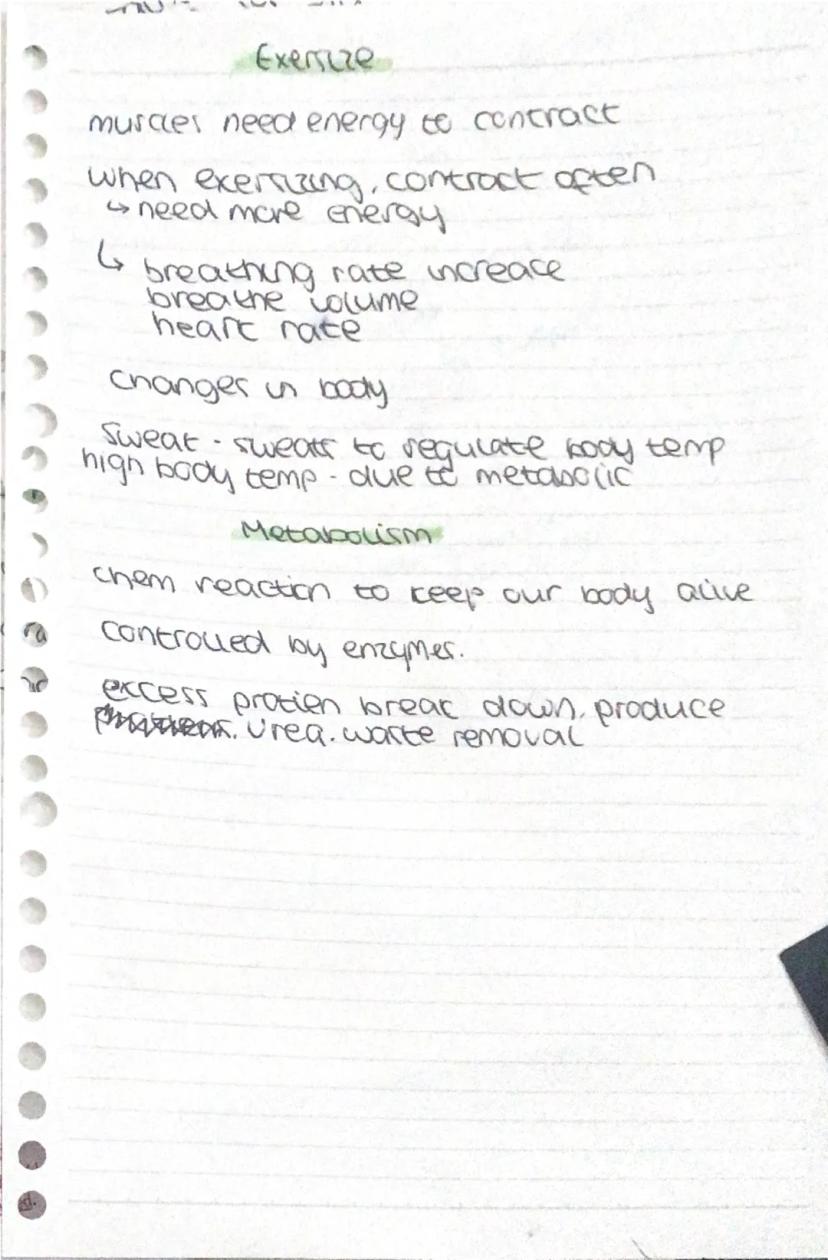 Exersize
muscles need energy to contract
when exersizing, contract often
↳ need more energy
↳ breathing rate increace
breathe volume
heart rate
changes in body
sweat - sweats to regulate body temp
high body temp - due to metabolic
Metabolism
chem reaction to keep our body alive
controlled by enzymes.
excess protien break down, produce
urea. waste removal